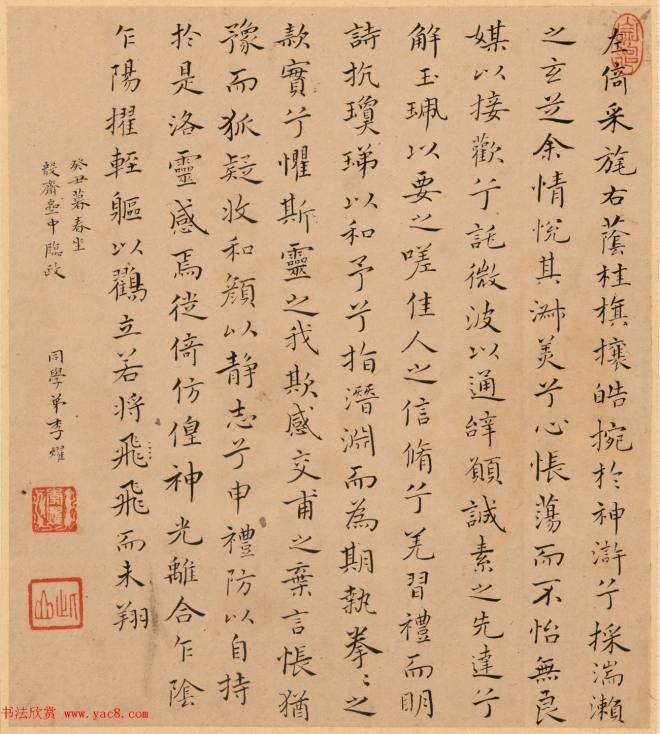 左倚采旄右蔭桂旗攘皓捥於神滸兮採湍瀨
之玄芝余情悅其淑美兮心悵蕩而不怡無良
媒以接歡兮託微波以通辭願誠素之先達兮
解玉珮以要之嗟佳人之信脩兮羌習禮而明
詩抗瓊珶以和予兮指潛淵而為期執拳〻之
款實兮懼斯靈之我欺感交甫之棄言悵猶
豫而狐疑收和顏以静志兮申禮防以自持
於是洛靈感焉徙倚仿偟神光離合乍陰
乍陽擢輕軀以鸛立若將飛飛而未翔
癸丑暮春坐
嗀齋臨政
同學弟李燿
书法欣赏 www.yac8.com